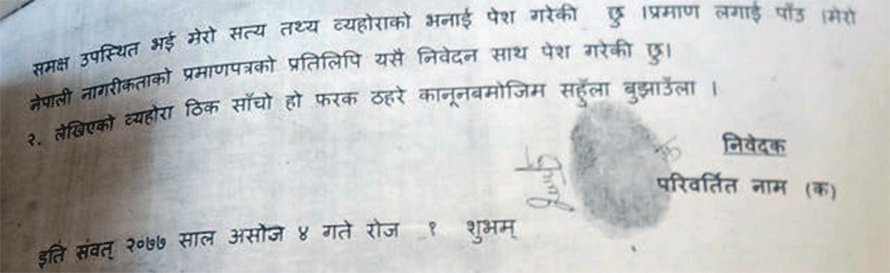 समक्ष उपस्थित भई मेरो सत्य तथ्य व्यहोराको भनाई पेश गरेकी छु ।प्रमाण लगाई पाँउ ।मेरो
नेपाली नागरीकताको प्रमाणपत्रको प्रतिलिपि यसै निवेदन साथ पेश गरेकी छु।
२. लेखिएको व्यहोरा ठिक साँचो हो फरक ठहरे कानूनबमोजिम सहुँला बुझाउँला ।
निवेदक
परिवर्तित नाम (क)
इति संवत् २०७७ साल असोज ४ गते रोज १ शुभम्